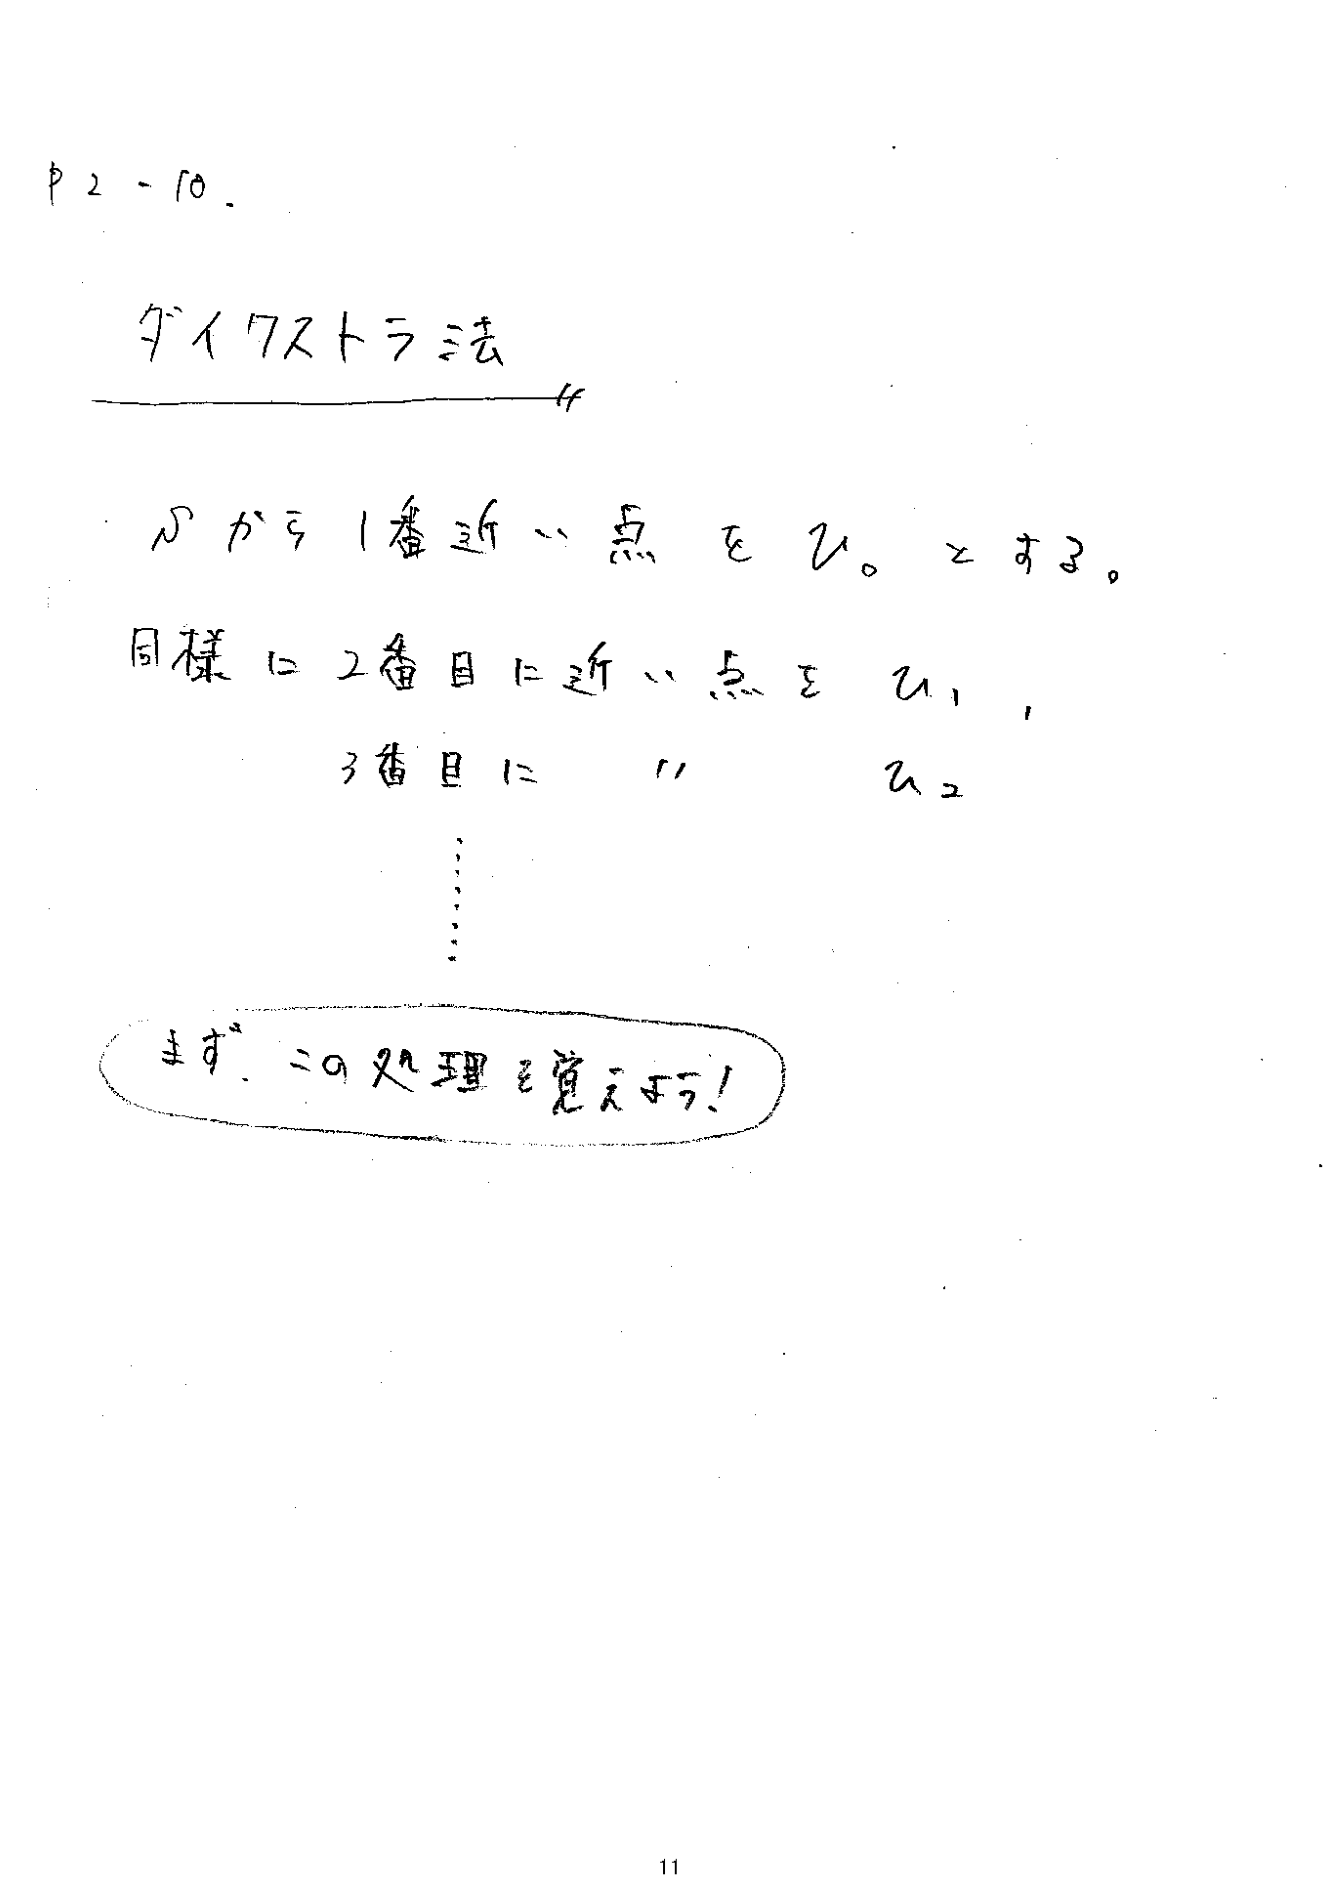 P2-10.
ダイクストラ法
Sから1番近い点をv₀とする。
同様に2番目に近い点をv₁,
3番目に 〃 v₂
まず、この処理を覚えよう!
11